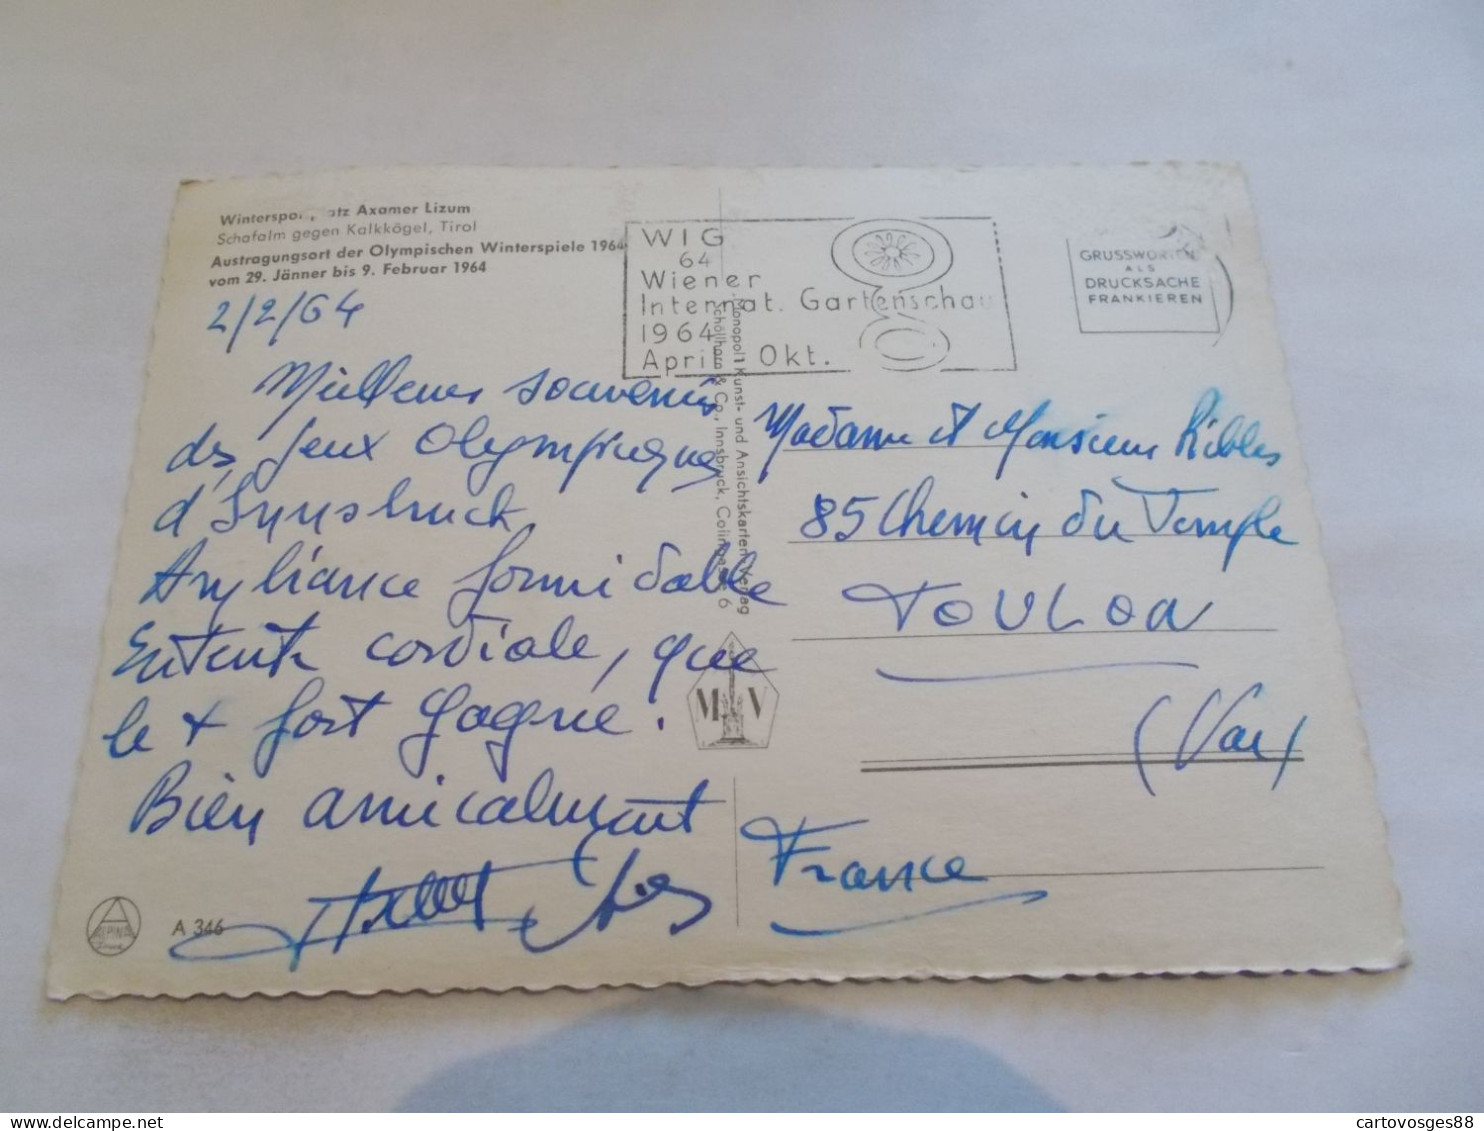 Winterspo atz Axamer Lizum
Schafalm gegen Kalkkögel, Tirol
Austragungsort der Olympischen Winterspiele 1964
vom 29. Jänner bis 9. Februar 1964
2/2/64
Meilleurs souvenirs
des Jeux Olympiques
d'Innsbruck.
Ambiance formidable
Entente cordiale, que
le + fort gagne.
Bien amicalement
A 346
ALPINA
WIG
64
Wiener
Internat. Gartenschau
1964
April Okt.
GRUSSWORTEN
ALS
DRUCKSACHE
FRANKIEREN
Monopol Kunst- und Ansichtskarten Verlag
Schöllhorn & Co., Innsbruck, Colingasse 6
M V
Madame et Monsieur Ribles
85 Chemin du Temple
TOULON
(Var)
France
cartovosges88